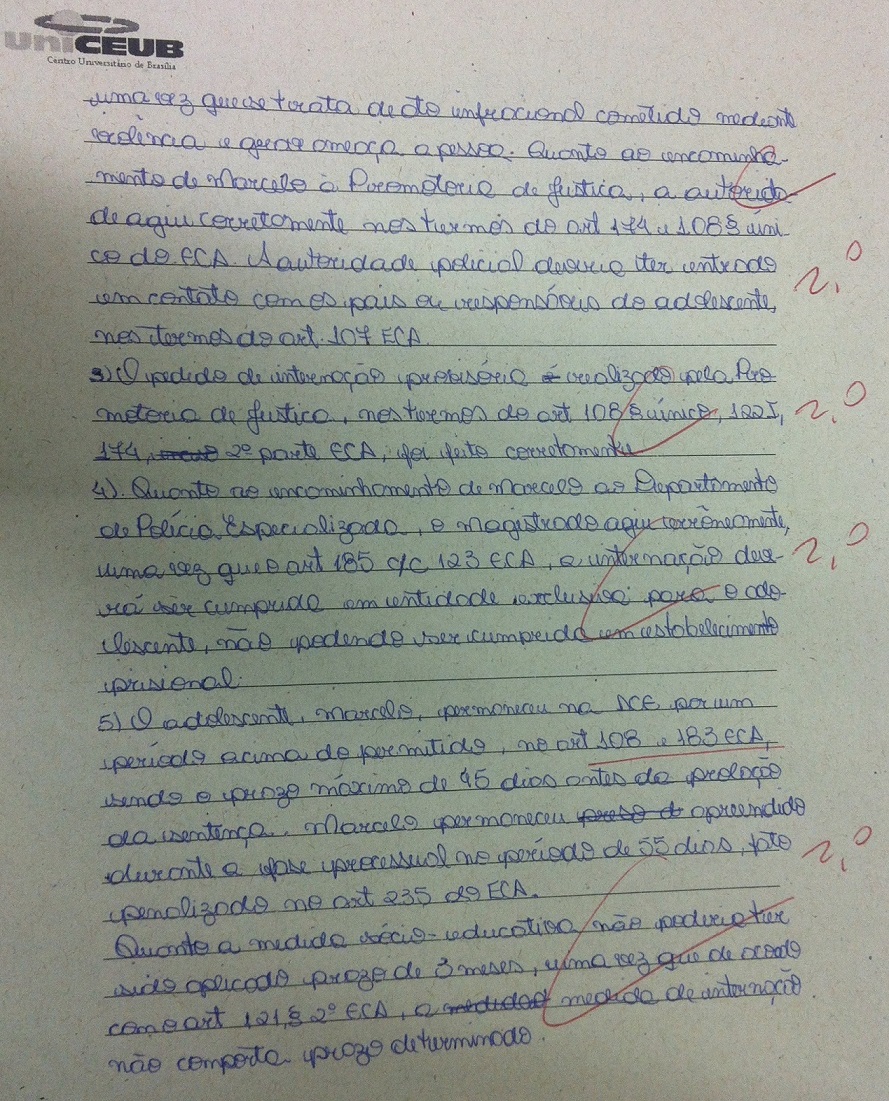 uniCEUB
Centro Universitário de Brasília
uma vez que se trata de ato infracional cometido mediante
violência e grave ameaça a pessoa. Quanto ao encaminha-
mento de Marcelo à Promotoria de Justiça, a autorida-
de agiu corretamente nos termos do art 174 e 108 § úni-
co do ECA. A autoridade policial deveria ter entrado
em contato com os pais ou responsáveis do adolescente,
2,0
nos termos do art. 107 ECA.
3) O pedido de internação provisória é realizado pela Pro
motoria de Justiça, nos termos do art 108 § único, 122 I,
2,0
174, 2ª parte ECA, foi feito corretamente
4). Quanto ao encaminhamento de Marcelo ao Departamento
de Polícia Especializada, o Magistrado agiu erroneamente,
uma vez que o art 185 c/c 123 ECA, a internação deve-
2,0
rá ser cumprida em entidade exclusiva para o ado-
lescente, não podendo ser cumprida em estabelecimento
prisional.
5) O adolescente, Marcelo, permaneceu na DCE por um
período acima do permitido, no art 108 e 183 ECA,
sendo o prazo máximo de 45 dias antes da prolação
da sentença. Marcelo permaneceu preso apreendido
durante a fase processual no período de 55 dias, fato
2,0
penalizado no art 235 do ECA.
Quanto a medida sócio-educativa não poderia ter
sido aplicado prazo de 3 meses, uma vez que de acordo
com o art 121, § 2º ECA, a medida medida de internação
não comporta prazo determinado.